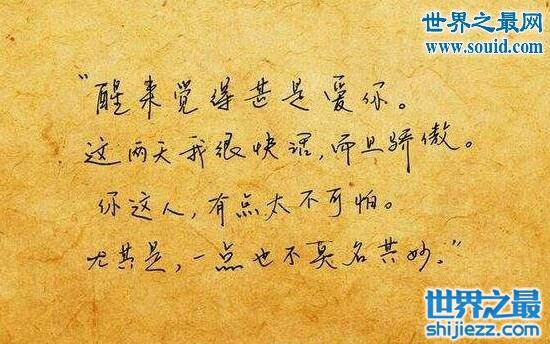 世界之最网
www.souid.com
“醒来觉得甚是爱你。
这两天我很快活,而且骄傲。
你这人,有点太不可怕。
尤其是,一点也不莫名其妙。”
世界之最
shijiezz.com